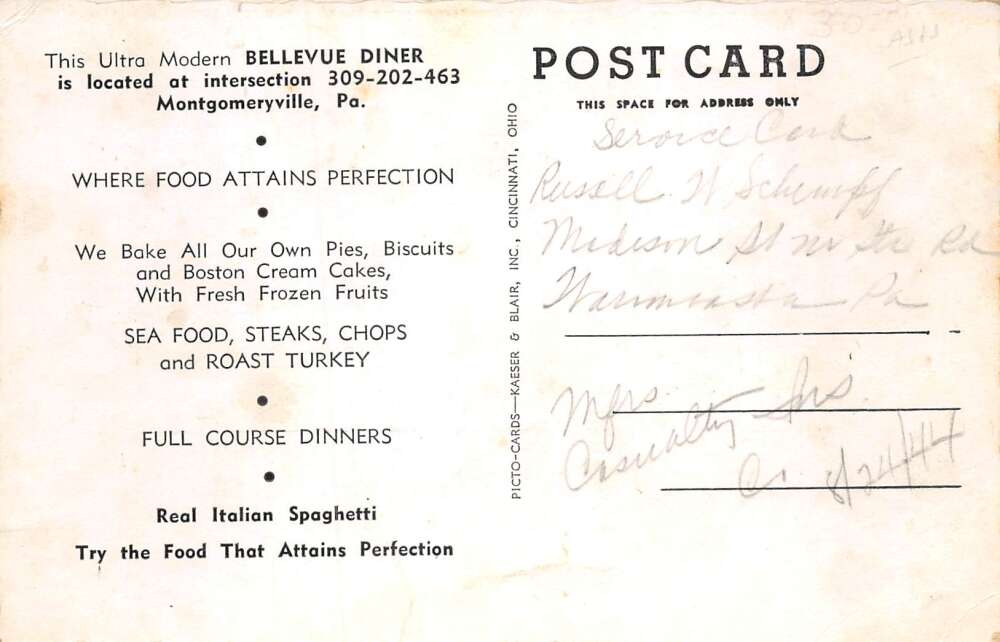 This Ultra Modern BELLEVUE DINER
is located at intersection 309-202-463
Montgomeryville, Pa.
WHERE FOOD ATTAINS PERFECTION
We Bake All Our Own Pies, Biscuits
and Boston Cream Cakes,
With Fresh Frozen Fruits
SEA FOOD, STEAKS, CHOPS
and ROAST TURKEY
FULL COURSE DINNERS
Real Italian Spaghetti
Try the Food That Attains Perfection
PICTO-CARDS—KAESER & BLAIR, INC., CINCINNATI, OHIO
POST CARD
THIS SPACE FOR ADDRESS ONLY
Service Card
Russell W Schempf
Madison St Rd
Pa
Mfrs
Casualty Ins
Co 8/24/44